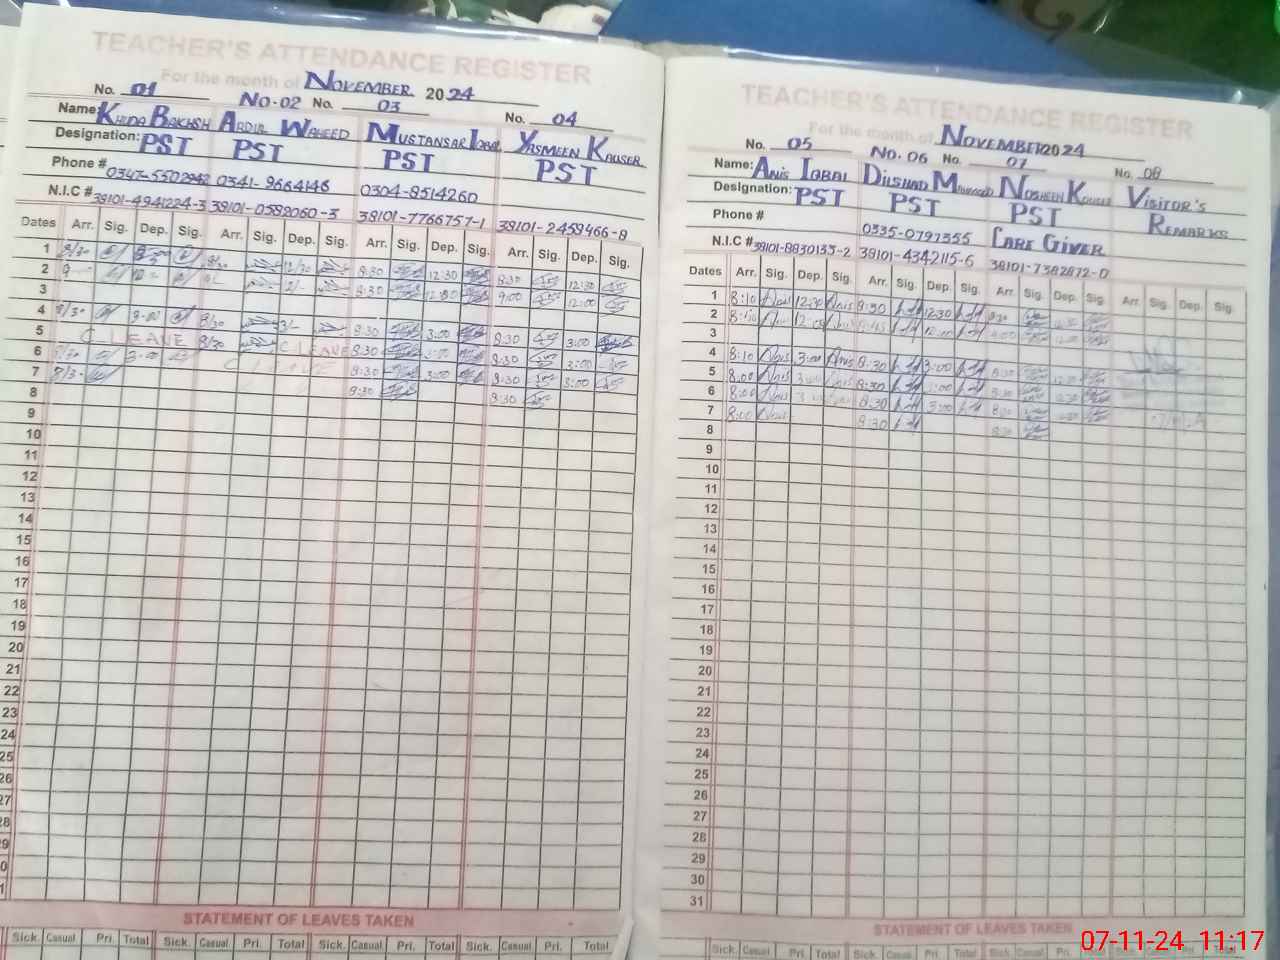 TEACHER'S ATTENDANCE REGISTER
For the month of NOVEMBER 2024
No. 01 No.02 No. 03 No. 04
Name: KHUDA BAKHSH ABDUL WAHEED MUSTANSAR IQBAL YASMEEN KAUSER
Designation: PST PST PST PST
Phone # 0341-9664146 0304-8514260
N.I.C # 38101-4941224-3 38101-0582060-3 38101-7766757-1 38101-2459466-8
Dates Arr. Sig. Dep. Sig. Arr. Sig. Dep. Sig. Arr. Sig. Dep. Sig. Arr. Sig. Dep. Sig.
1 8/30 8/30 12/30 8:30 12:30 8:30 12:30
2 9 8:30 12:00 9:00 12:00
3
4 8/30 3-00 8/30 3/- 8:30 3:00 8:30 3:00
5 C LEAVE 8/30 C LEAVE 8:30 3:00 8:30 3:00
6 3-00 C LEAVE 8:30 3:00 8:30 3:00
7 8:30 8:30
8
9
10
11
12
13
14
15
16
17
18
19
20
21
22
23
24
25
26
27
28
29
30
31
STATEMENT OF LEAVES TAKEN
Sick. Casual Pri. Total Sick. Casual Pri. Total Sick. Casual Pri. Total Sick. Casual Pri. Total
TEACHER'S ATTENDANCE REGISTER
For the month of NOVEMBER 2024
No. 05 No. 06 No. 07 No. 08
Name: ANIS IQBAL DILSHAD NOSHEEN KAUSER VISITOR'S
Designation: PST PST PST REMARKS
Phone # 0335-0797355 CARE GIVER
N.I.C # 38101-8830135-2 38101-4342115-6 38101-7382872-0
Dates Arr. Sig. Dep. Sig. Arr. Sig. Dep. Sig. Arr. Sig. Dep. Sig. Arr. Sig. Dep. Sig.
1 8:10 Anis 12:30 Anis 8:30 12:30 8:30
2 8:10 Anis Anis 8:45 12:00 9:00
3
4 8:10 Anis 3:00 Anis 8:30 3:00 8:30
5 8:00 Anis 3:00 Anis 8:30 3:00 8:30
6 8:00 Anis Anis 8:30 3:00 8:30
7 8:00 Anis 8:30 8:30
8
9
10
11
12
13
14
15
16
17
18
19
20
21
22
23
24
25
26
27
28
29
30
31
STATEMENT OF LEAVES TAKEN
Sick. Casual Pri. Total Sick. Casual Pri. Total Sick. Casual Pri. Total Sick. Casual Pri. Total
07-11-24 11:17